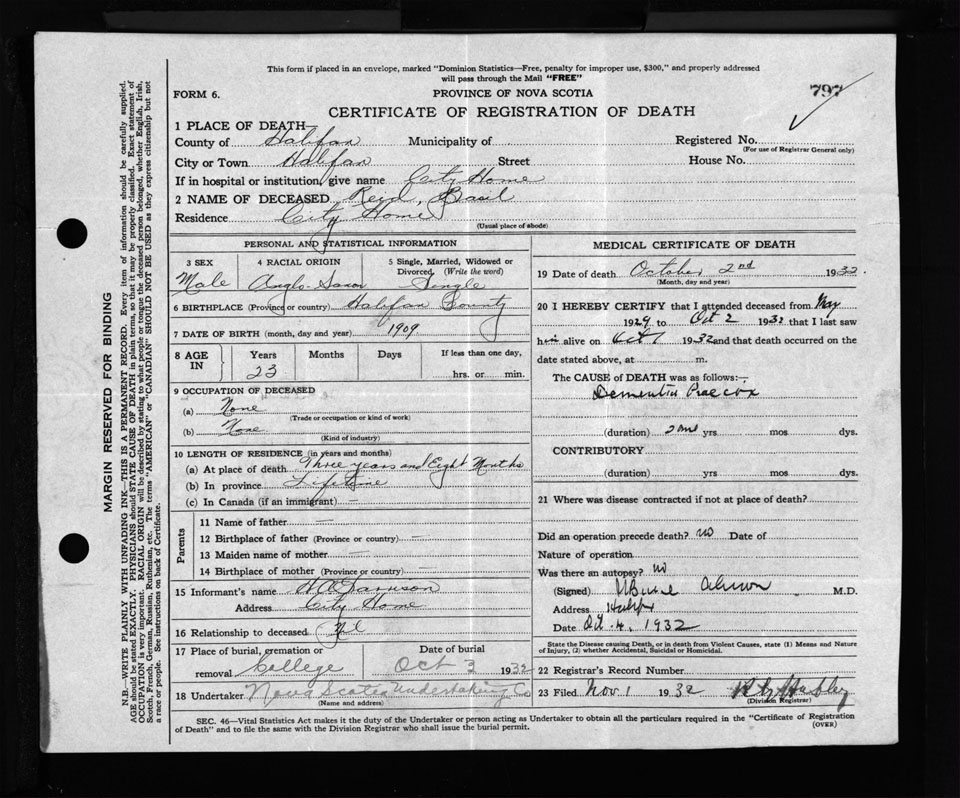 This form if placed in an envelope, marked "Dominion Statistics—Free, penalty for improper use, $300," and properly addressed
will pass through the Mail "FREE"
FORM 6.
PROVINCE OF NOVA SCOTIA
797
CERTIFICATE OF REGISTRATION OF DEATH
1 PLACE OF DEATH—
County of Halifax Municipality of Registered No.
(For use of Registrar General only)
City or Town Halifax Street House No.
If in hospital or institution, give name City Home
2 NAME OF DECEASED Reyd, Basil
Residence City Home
(Usual place of abode)
PERSONAL AND STATISTICAL INFORMATION
3 SEX 4 RACIAL ORIGIN 5 Single, Married, Widowed or
Divorced. (Write the word)
Male Anglo-Saxon Single
6 BIRTHPLACE (Province or country) Halifax County
7 DATE OF BIRTH (month, day and year) 1909
8 AGE IN Years Months Days If less than one day,
23 hrs. or min.
9 OCCUPATION OF DECEASED
(a) None
(Trade or occupation or kind of work)
(b) None
(Kind of industry)
10 LENGTH OF RESIDENCE (in years and months)
(a) At place of death Three years and Eight Months
(b) In province Life time
(c) In Canada (if an immigrant) —
Parents
11 Name of father —
12 Birthplace of father (Province or country) —
13 Maiden name of mother —
14 Birthplace of mother (Province or country) —
15 Informant's name
Address City Home
16 Relationship to deceased Nil
17 Place of burial, cremation or removal Date of burial
College Oct 3 1932
18 Undertaker Nova Scotia Undertaking Co
(Name and address)
MEDICAL CERTIFICATE OF DEATH
19 Date of death October 2nd 1932
(Month, day and year)
20 I HEREBY CERTIFY that I attended deceased from May
1929 to Oct 2 1932 that I last saw
him alive on Oct 1 1932 and that death occurred on the
date stated above, at m.
The CAUSE of DEATH was as follows:—
Dementia Praecox
(duration) yrs mos dys.
CONTRIBUTORY
(duration) yrs mos dys.
21 Where was disease contracted if not at place of death?
Did an operation precede death? no Date of
Nature of operation
Was there an autopsy? no
(Signed) M.D.
Address Halifax
Date Oct. 4, 1932
State the Disease causing Death, or in death from Violent Causes, state (1) Means and Nature
of Injury, (2) whether Accidental, Suicidal or Homicidal.
22 Registrar's Record Number
23 Filed Nov. 1 1932
(Division Registrar)
SEC. 46—Vital Statistics Act makes it the duty of the Undertaker or person acting as Undertaker to obtain all the particulars required in the "Certificate of Registration
of Death" and to file the same with the Division Registrar who shall issue the burial permit.
(OVER)
MARGIN RESERVED FOR BINDING
N.B.—WRITE PLAINLY WITH UNFADING INK—THIS IS A PERMANENT RECORD. Every item of information should be carefully supplied.
AGE should be stated EXACTLY. PHYSICIANS should STATE CAUSE OF DEATH in plain terms, so that it may be properly classified. Exact statement of
OCCUPATION is very important. RACIAL ORIGIN will be described by stating to what people or tongue the deceased person belonged, whether English, Irish,
Scotch, French, German, Russian, Ruthenian, etc. The terms "AMERICAN" or "CANADIAN" SHOULD NOT BE USED as they express citizenship but not
a race or people. See instructions on back of Certificate.